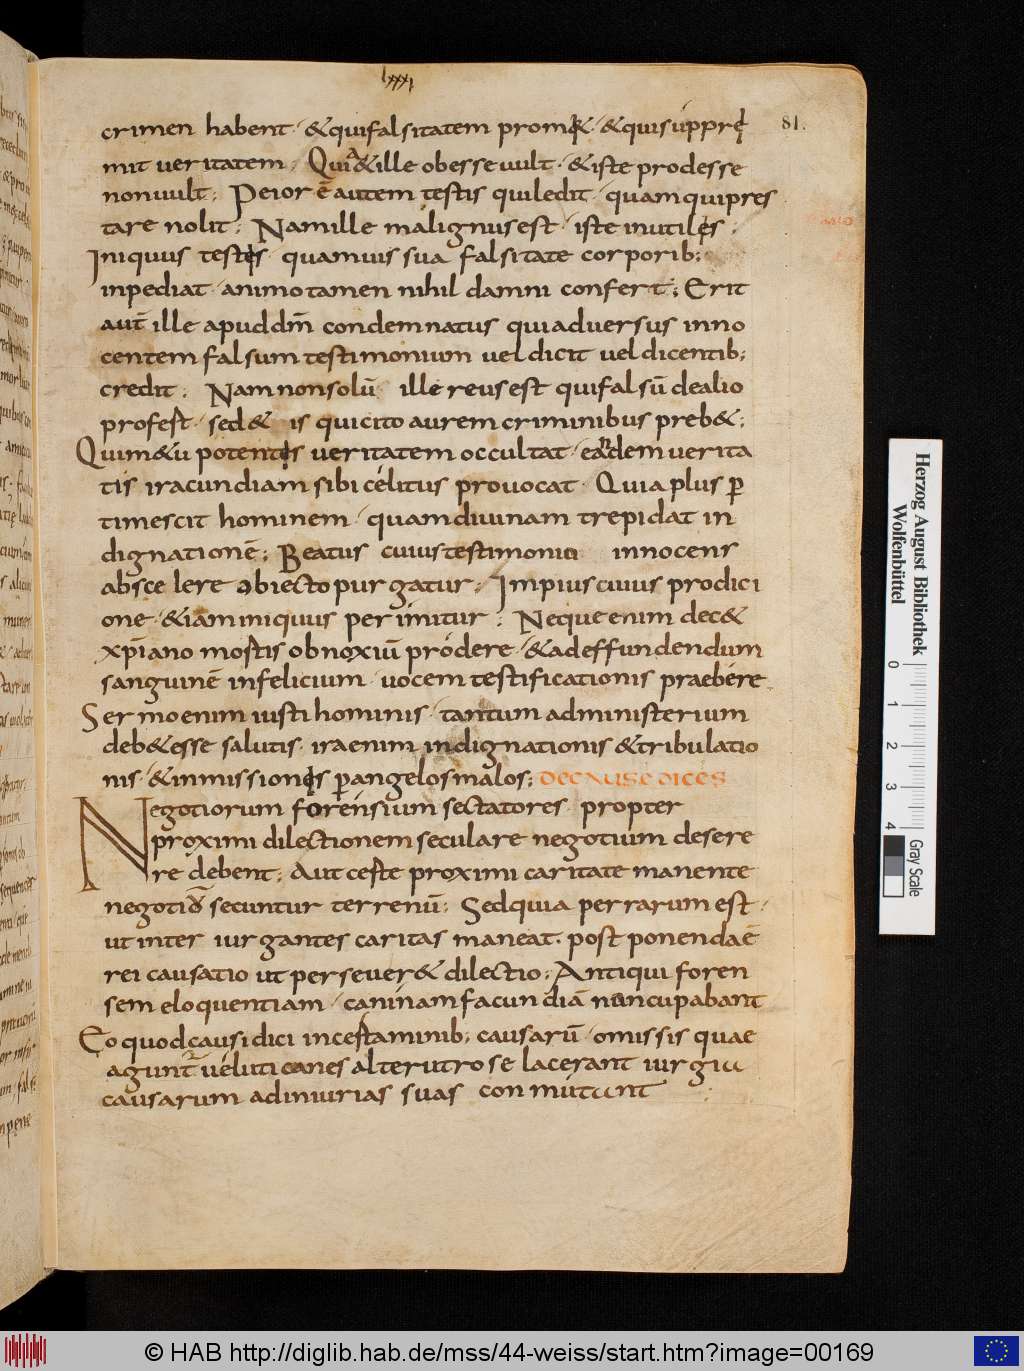 lxxxi
81.
crimen habent · & qui falsitatem prom& · & qui suppre
mit ueritatem ; Quia & ille obesse uult · & iste prodesse
non uult ; Peior ē autem testis qui ledit · quam qui pres
tare nolit ; Nam ille malignus est · iste inutilis ;
Iniquus testis · quamuis sua falsitate corporib;
inpediat · animo tamen nihil damni confert ; Erit
aut̄ ille apud dm̄ condemnatus qui aduersus inno
centem falsum testimonium uel dicit uel dicentib;
credit ; Nam non solū ille reus est qui falsū de alio
profest · sed & is qui cito aurem criminibus preb& ;
Qui m&ū potentis ueritatem occultat · eandem uerita
tis iracundiam sibi célitus prouocat · Quia plus p̄
timescit hominem · quam diuinam trepidat in
dignationē ; Beatus cuius testimonio innocens
ab scelere obiecto purgatur ; Impius cuius prodici
one · & iam iniquus perimitur ; Neque enim dec&
xp̄iano mostis obnoxiū pródere · & ad effundendum
sanguinē infelicium · uocem testificationis praebére
Sermo enim iusti hominis · tantum administerium
deb& esse salutis · ira enim indignationis & tribulatio
nis · & inmissionis p̄ angelos malos ; DE CAUSEDICES
Negotiorum forénsium sectatores · propter
proximi dilectionem seculare negotium desere
re debent ; Aut ceste proximi caritate manente
negotiū secuntur terrenū ; Sed quia per rarum est ·
ut inter iurgantes caritas maneat · postponenda ē
rei causatio ut perseuer& dilectio ; Antiqui foren
sem eloquentiam · caninam facundiā nuncupabant
Eo quod causidici in cestaminib; causarū · omissis quae
agunt uéluti canes alterutro se lacerant iurgiu
causarum ad iniurias suas conmútunt
Herzog August Bibliothek
Wolfenbüttel
0 1 2 3 4
Gray Scale
© HAB http://diglib.hab.de/mss/44-weiss/start.htm?image=00169